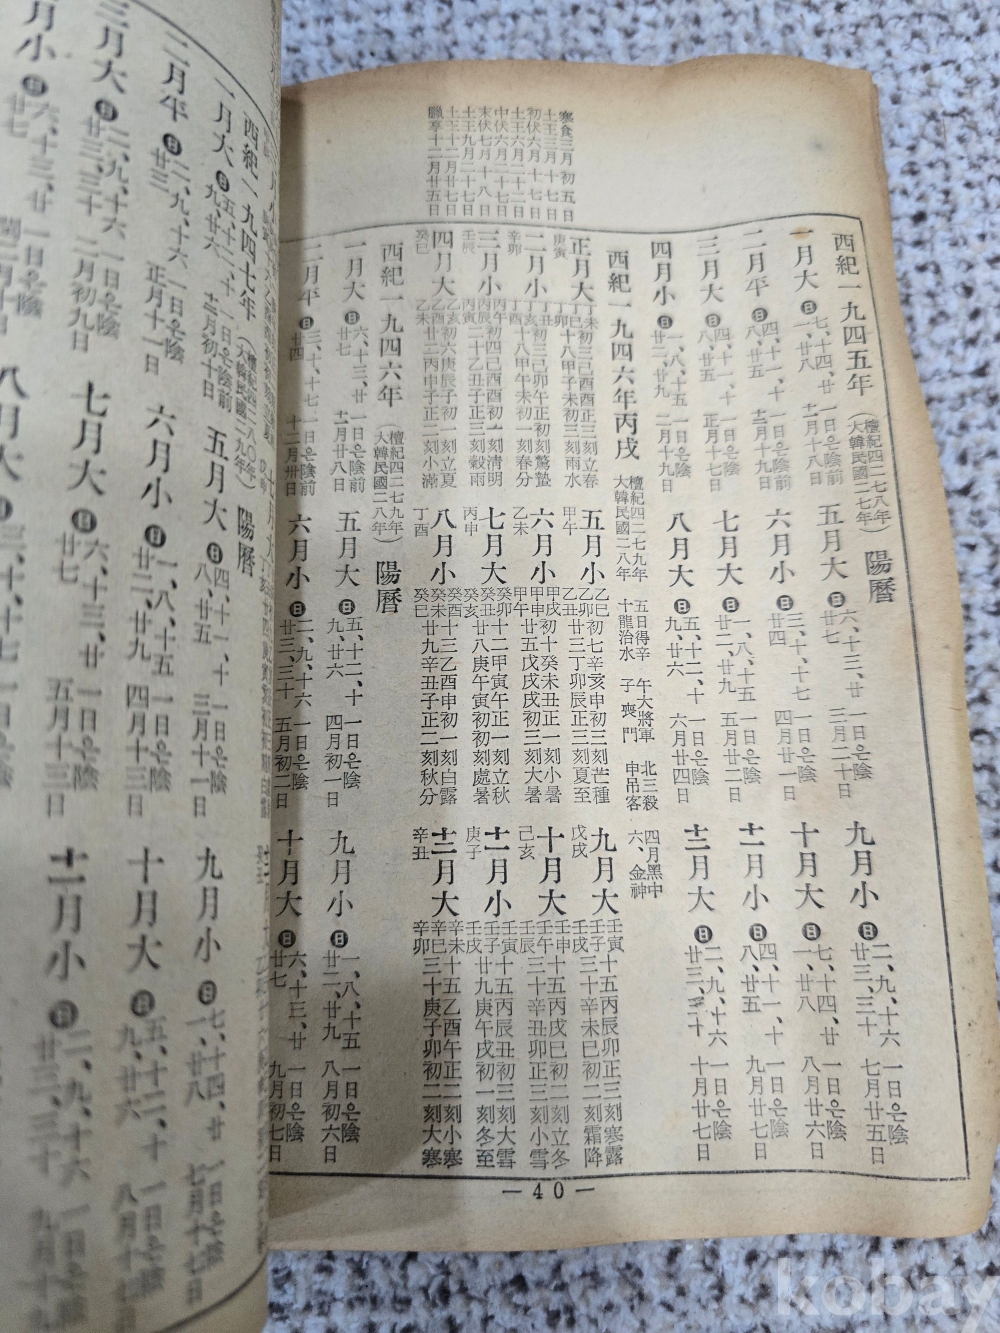 寒食三月初五日
土王三月十七日
初伏六月十七日
土王六月二十二日
中伏六月二十七日
末伏七月十八日
土王九月二十七日
土王十二月廿七日
臘享十二月廿五日
西紀一九四五年 (檀紀四二七八年) (大韓民國二七年) 陽曆
一月大 日 七、十四、廿一、廿八 一日은陰前十一月十八日
五月大 日 六、十三、廿、廿七 一日은陰三月二十日
九月小 日 二、九、十六、廿三、三十 一日은陰七月廿五日
二月平 日 四、十一、十八、廿五 一日은陰前十二月十九日
六月小 日 三、十、十七、廿四 一日은陰四月廿一日
十月大 日 七、十四、廿一、廿八 一日은陰八月廿六日
三月大 日 四、十一、十八、廿五 一日은陰正月十七日
七月大 日 一、八、十五、廿二、廿九 一日은陰五月廿二日
十一月小 日 四、十一、十八、廿五 一日은陰九月廿七日
四月小 日 一、八、十五、廿二、廿九 一日은陰二月十九日
八月大 日 五、十二、十九、廿六 一日은陰六月廿四日
十二月大 日 二、九、十六、廿三、三十 一日은陰十月廿七日
西紀一九四六年丙戌 檀紀四二七九年 大韓民國二八年 五日得辛 十龍治水 午大將軍 子喪門 北三殺 申吊客 四月黑中 六、金神
正月大 庚寅 丁未初三己酉正三刻立春 丁巳十八甲子未初三刻雨水 丁卯
五月小 甲午 乙巳初七辛亥申初三刻芒種 乙卯廿三丁卯辰正三刻夏至 乙丑
九月大 戊戌 壬寅十五丙辰卯正三刻寒露 壬子三十辛未巳初二刻霜降 壬戌
二月小 辛卯 丁丑初三己卯正初三刻驚蟄 丁亥十八甲午未初一刻春分 丁酉
六月小 乙未 甲戌初十癸未丑正一刻小暑 甲申廿五戊戌戌初三刻大暑 甲午
十月大 己亥 壬申十五丙戌巳初二刻立冬 壬午三十辛丑卯正三刻小雪 壬辰
三月小 壬辰 丙午初四己酉酉初三刻清明 丙辰二十乙丑子正三刻穀雨 丙寅
七月大 丙申 癸卯十二甲寅午正一刻立秋 癸丑廿八庚午寅初初刻處暑 癸亥
十一月小 庚子 壬寅十五丙辰丑初三刻大雪 壬子廿九庚午戌初一刻冬至 壬戌
四月大 癸巳 乙亥初六庚辰子初一刻立夏 乙酉廿二丙申子正二刻小滿 乙未
八月小 丁酉 癸酉十三乙酉申初一刻白露 癸未廿九辛丑子正二刻秋分 癸巳
十二月大 辛丑 辛未十五乙酉午正二刻小寒 辛巳三十庚子卯初二刻大寒 辛卯
西紀一九四六年 (檀紀四二七九年) (大韓民國二八年) 陽曆
一月大 日 六、十三、廿、廿七 一日은陰前十一月廿八日
五月大 日 五、十二、十九、廿六 一日은陰四月初一日
九月小 日 一、八、十五、廿二、廿九 一日은陰八月初六日
二月平 日 三、十、十七、廿四 一日은陰前十二月卅日
六月小 日 二、九、十六、廿三、三十 一日은陰五月初二日
十月大 日 六、十三、廿、廿七 一日은陰九月初七日
— 40 —
西紀一九四七年 (檀紀四二八〇年) (大韓民國二九年) 陽曆
一月大 日 五、十二、十九、廿六 一日은陰前十二月初十日
五月大 日 四、十一、十八、廿五 一日은陰三月十一日
九月小 日 七、十四、廿一、廿八 一日은陰七月十七日
二月平 日 二、九、十六、廿三 一日은陰正月十一日
六月小 日 一、八、十五、廿二、廿九 一日은陰四月十三日
十月大 日 五、十二、十九、廿六 一日은陰八月十七日
三月大 日 二、九、十六、廿三、三十 一日은陰二月初九日
七月大 日 六、十三、廿、廿七 一日은陰五月十三日
十一月小 日 二、九、十六、廿三、三十 一日은陰九月十九
月小 日 六、十三、廿、廿七
八月大
kobay